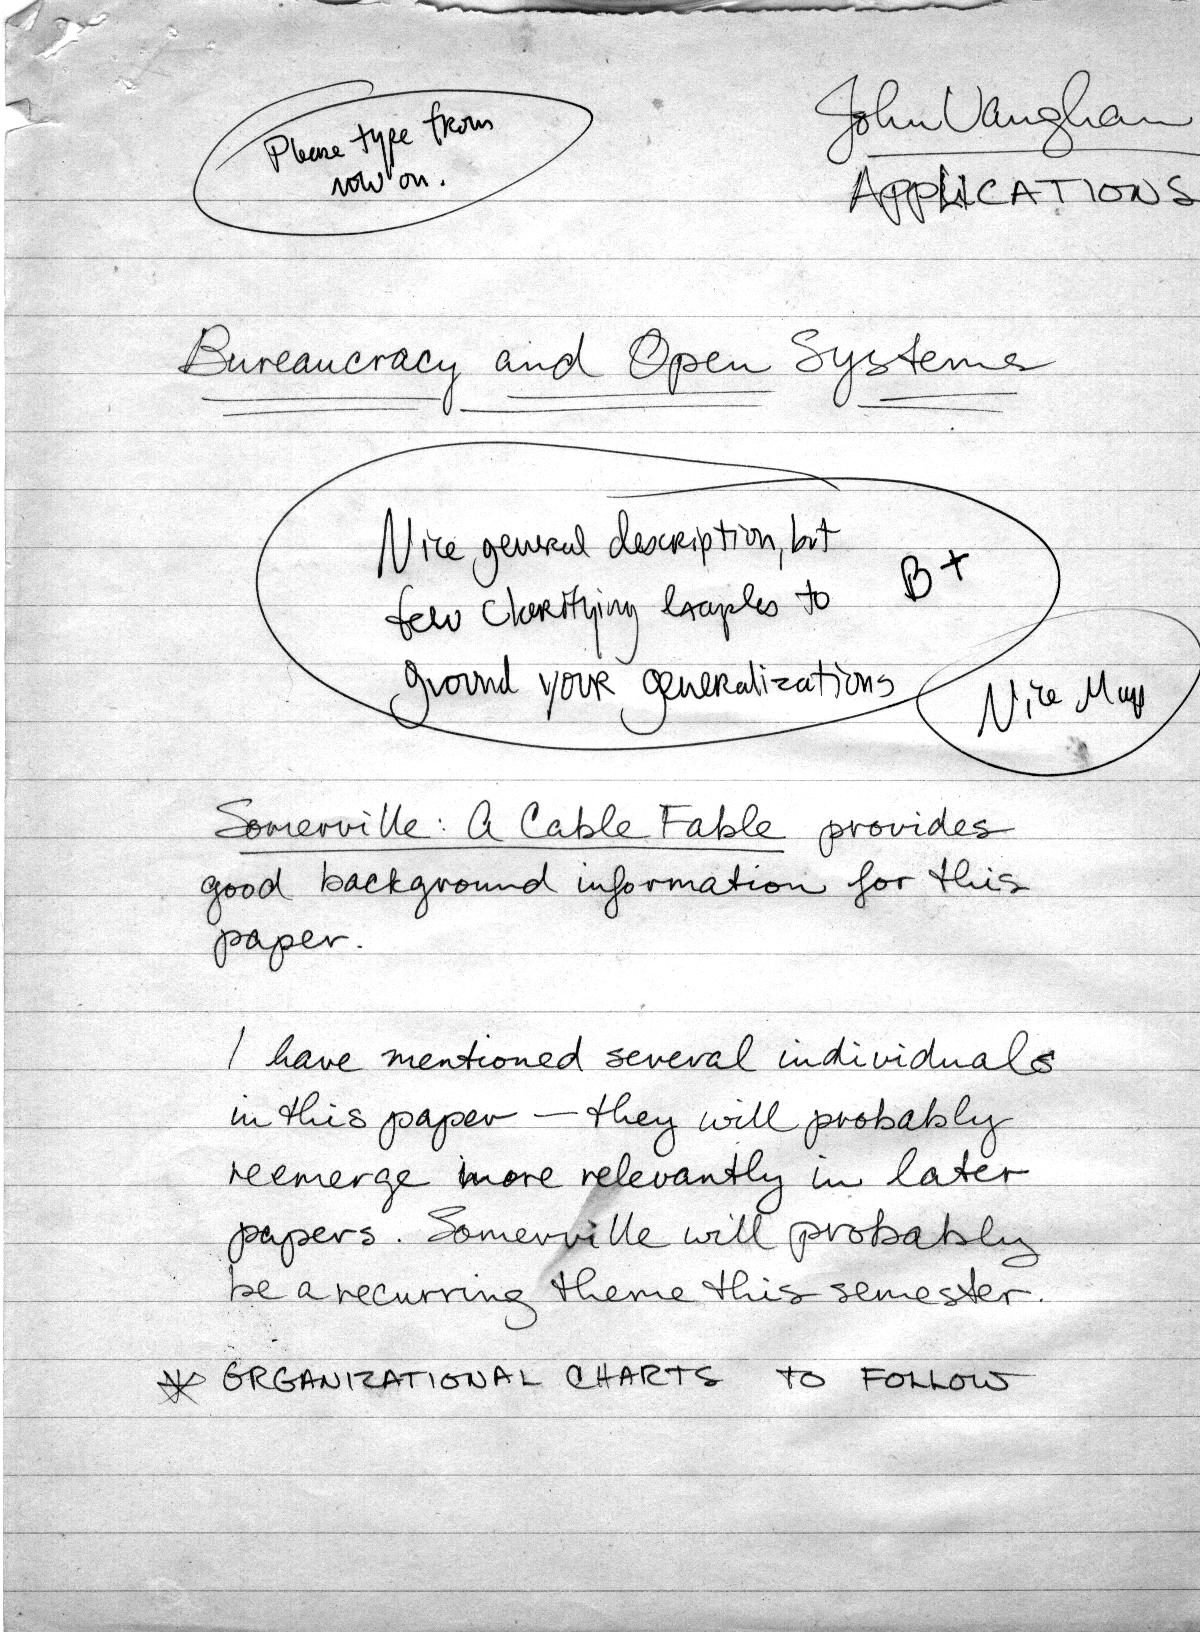 Please type from
now on.
John Vaughan
APPLICATIONS
Bureaucracy and Open Systems
Nice general description, but
few clarifying exaples to
ground your generalizations
B+
Nice Map
Somerville: A Cable Fable provides
good background information for this
paper.
I have mentioned several individuals
in this paper — they will probably
reemerge more relevantly in later
papers. Somerville will probably
be a recurring theme this semester.
* ORGANIZATIONAL CHARTS TO FOLLOW